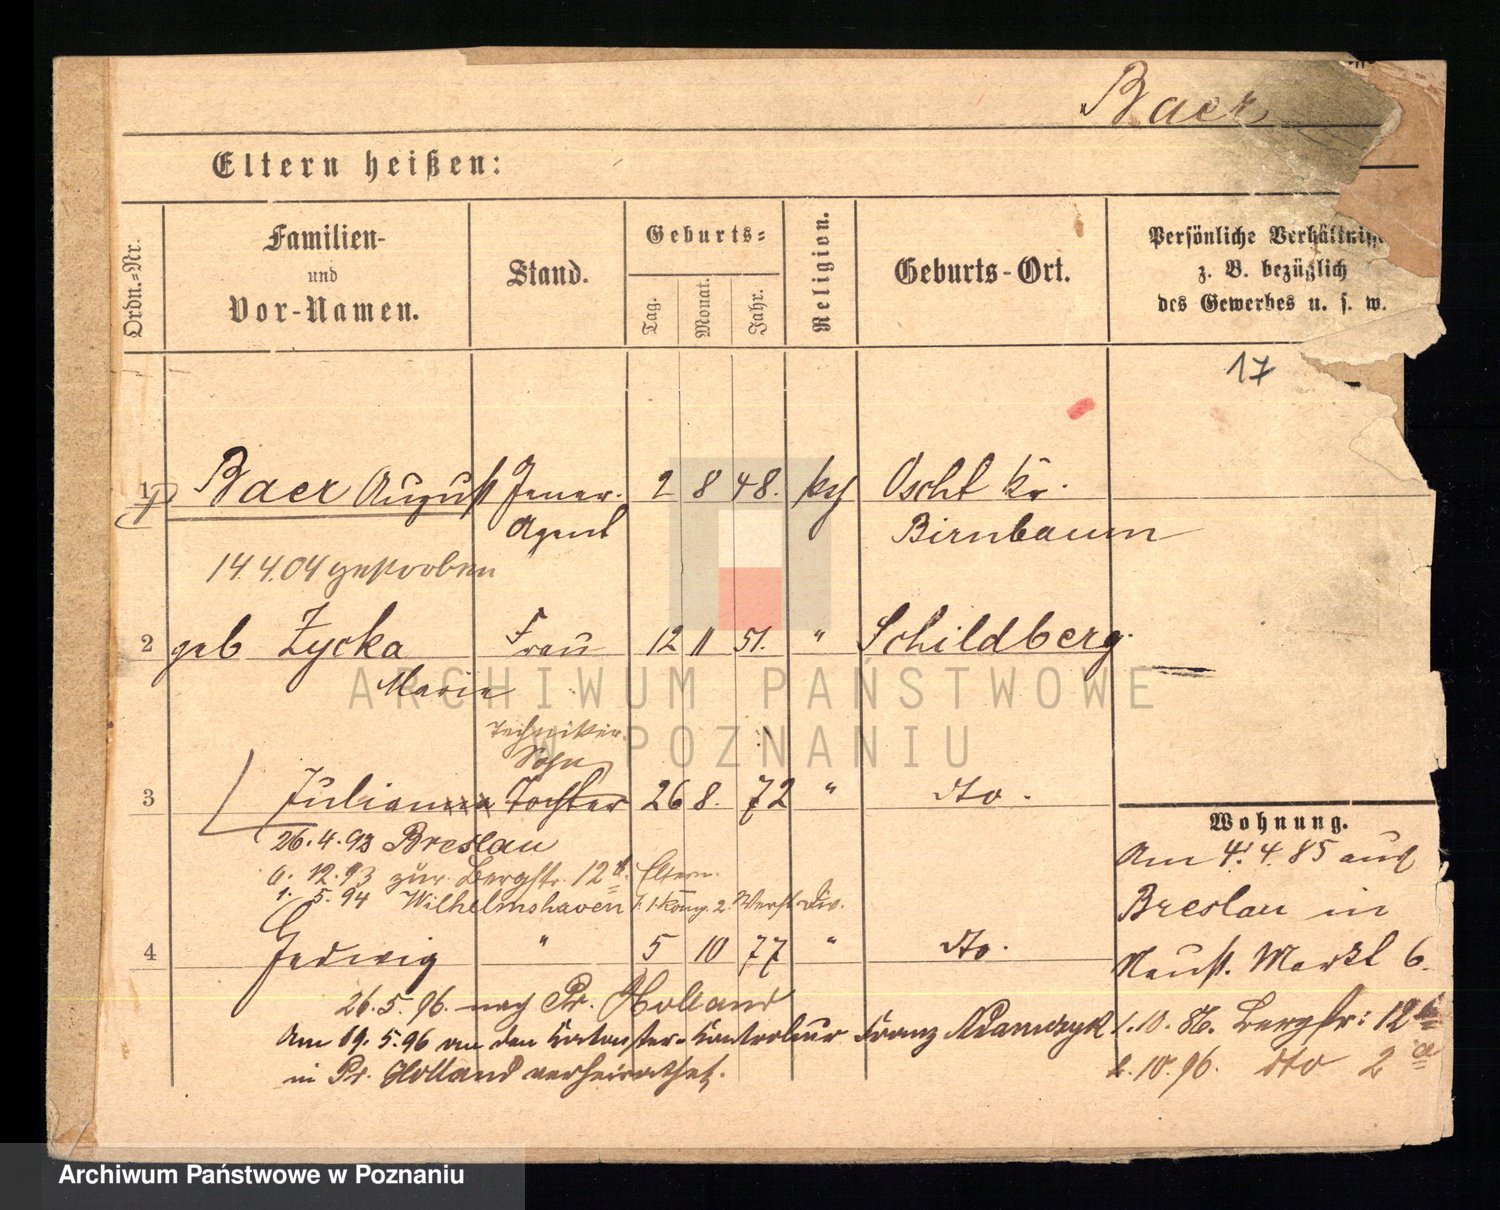 Baer
Eltern heißen:
Ordn.-Nr.
Familien-
und
Vor-Namen.
Stand.
Geburts-
Tag.
Monat.
Jahr.
Religion.
Geburts-Ort.
Persönliche Verhältnisse
z. B. bezüglich
des Gewerbes u. s. w.
17
1 Baer August Feuer- 2 8 48. kth Oscht Kr.
Agent Birnbaum
14.4.04 gestorben
2 geb Zycka Frau 12 11 51. " Schildberg
Marie
Techniker
Sohn
3 Julianna Tochter 26 8. 72 " dto.
26.4.93 Breslau
6. 12. 93 zur. Bergstr. 12a Eltern.
1. 5. 94 Wilhelmshaven 1. Komp. 2. Werft Div.
4 Hedwig " 5 10 77 " dto.
26.5.96. nach Pr. Holland
Am 19.5.96 an den Kataster-Kontrolleur Franz Adamczyk
in Pr. Holland verheirathet.
Wohnung.
Am 4.4.85 aus
Breslau in
Neust. Markt 6.
1.10.86. Bergstr: 12
2.10.96. dto 2a
ARCHIWUM PAŃSTWOWE
W POZNANIU
Archiwum Państwowe w Poznaniu